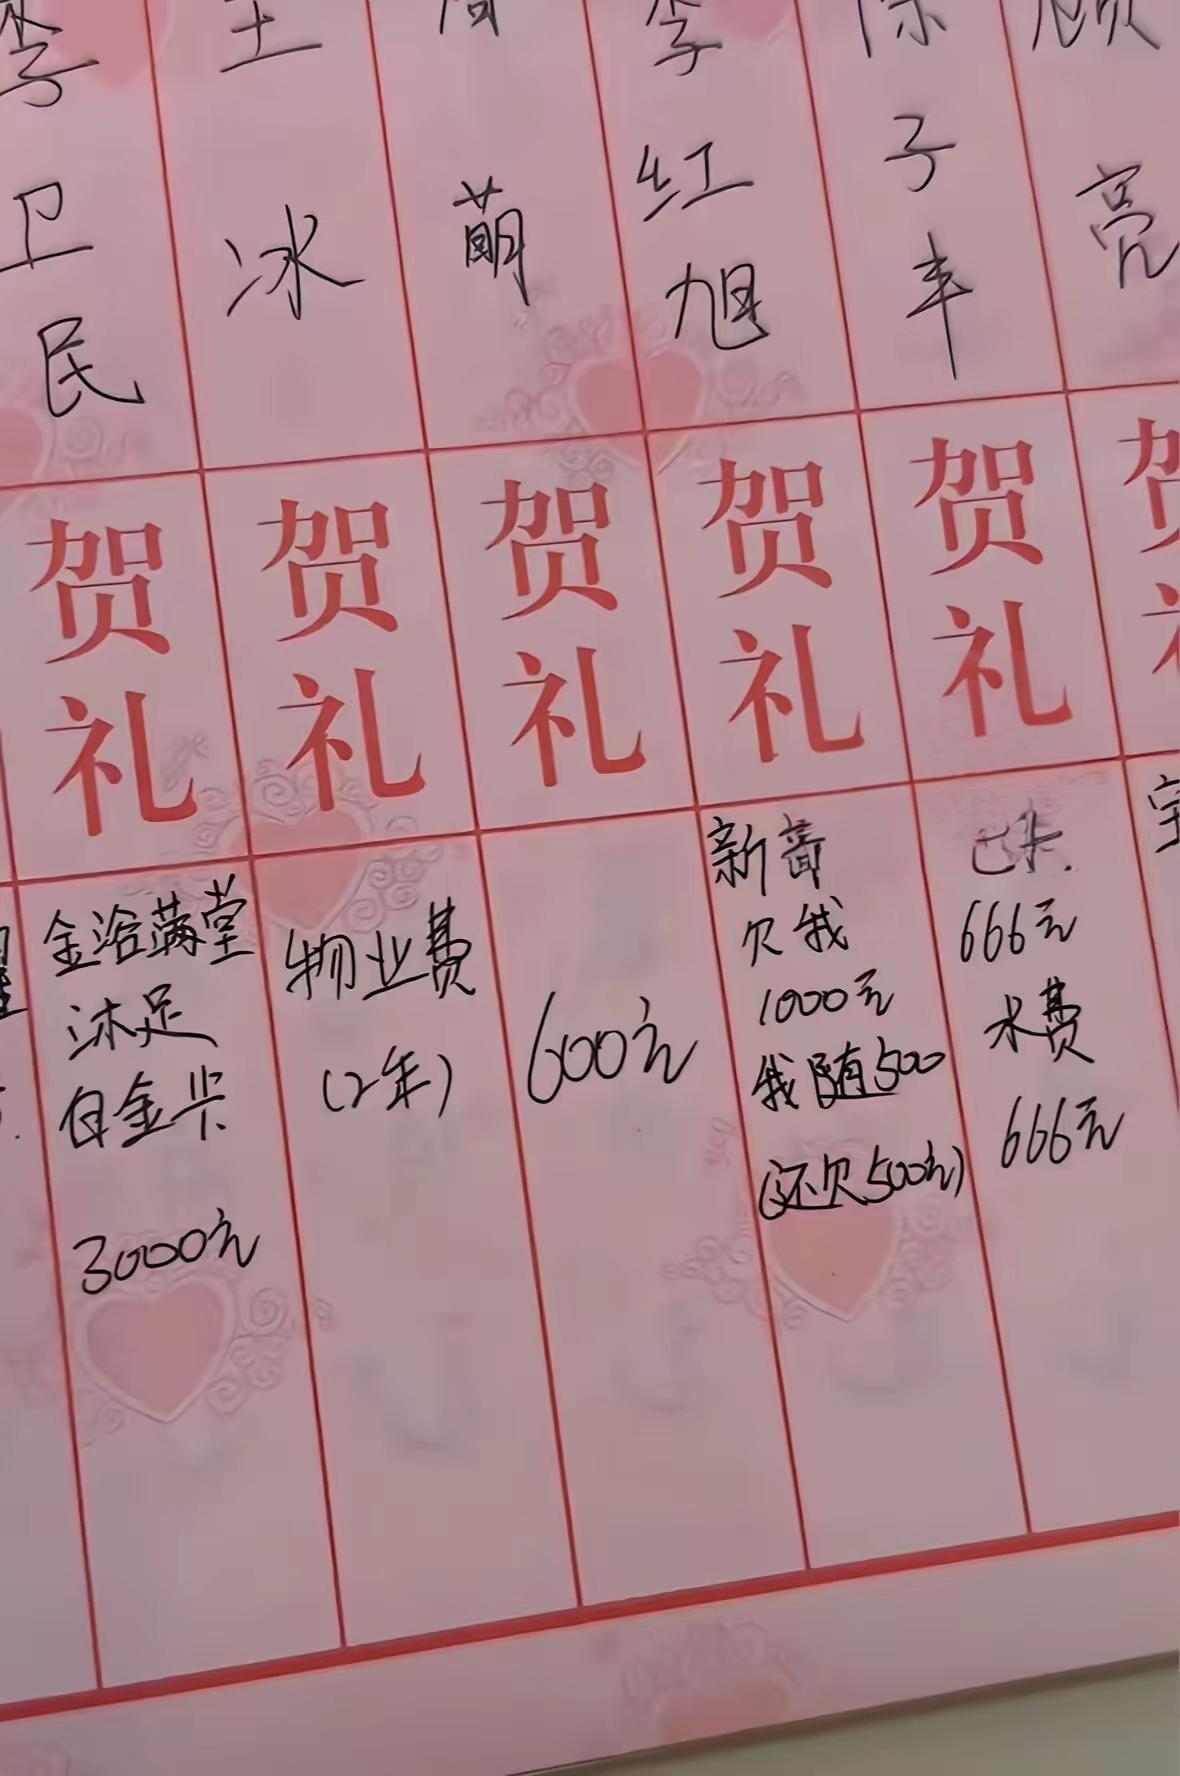 李卫民
王冰
萌
李红旭
陈子丰
顾亮
贺礼
贺礼
贺礼
贺礼
贺礼
金浴满堂
沐足
白金卡
3000元
物业费
(2年)
600元
新
欠我
1000元
我随500
(还欠500元)
666元
水费
666元